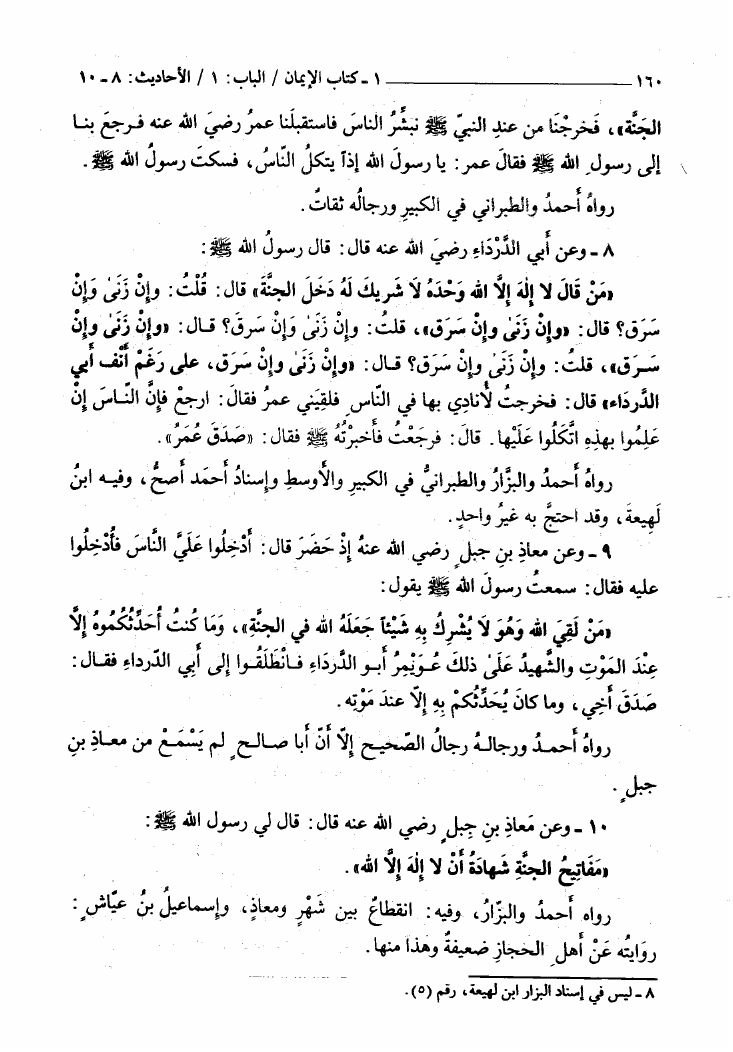 ١٦٠ ــــــــــــــــــــــــــــــــــ ١ ـ كتاب الإيمان / الباب: ١ / الأحاديث: ٨ ـ ١٠
الجَنَّة»، فَخرجْنَا من عندِ النبيّ ﷺ نبشِّرُ الناسَ فاستقبلَنا عمرُ رضيَ الله عنه فـرجعَ بنـا
إلى رسولِ الله ﷺ فقالَ عمر: يا رسولَ الله إذاً يتكلُ النّاسُ، فسكتَ رسولُ الله ﷺ.
رواهُ أحمدُ والطبراني في الكبيرِ ورجالُه ثقاتٌ.
٨ ـ وعن أَبي الدَّرْدَاءِ رضيَ الله عنه قال: قال رسولُ الله ﷺ:
«مَنْ قَالَ لا إِلٰهَ إِلَّا الله وَحْدَهُ لَا شَريكَ لَهُ دَخَلَ الجنَّةَ» قال: قُلْتُ: وإِنْ زَنَىٰ وَإِنْ
سَرَق؟ قال: «وإِنْ زَنَىٰ وإِنْ سَرَق»، قلتُ: وإِنْ زَنَىٰ وَإِنْ سَرقَ؟ قـال: «وإِنْ زَنَىٰ وإِنْ
سَـرق»، قلتُ: وإِنْ زَنَىٰ وإِنْ سَرَق؟ قـال: «وإِنْ زَنَىٰ وإِنْ سَرَق، على رَغْمِ أَنْف أَبي
الدَّردَاء» قال: فخرجتُ لأُنادِي بها في النّاسِ فلقِيَني عمرُ فقالَ: ارجعْ فإِنَّ النّـاسَ إِنْ
عَلِمُوا بهذِهِ اتَّكَلُوا عَلَيْها. قالَ: فرجَعْتُ فأَخبرْتُهُ ﷺ فقال: «صَدَقَ عُمَرُ».
رواهُ أَحمدُ والبزَّارُ والطبرانيُّ في الكبيرِ والأَوسطِ وإِسنادُ أَحمَد أَصحُّ، وفيـه ابنُ
لَهِيعة، وقد احتجَّ به غيرُ واحدٍ.
٩ ـ وعن معاذِ بنِ جبلٍ رضي الله عنهُ إِذْ حَضَرَ قال: أَدْخِلُوا عَلَيَّ النَّاسَ فأُدْخِلُوا
عليه فقال: سمعتُ رسولَ الله ﷺ يقول:
«مَنْ لَقِيَ الله وَهُوَ لَا يُشْرِكُ بِهِ شَيْئاً جَعَلَهُ الله في الجنَّةِ»، وَمَا كُنتُ أُحَدِّثُكُمُوهُ إِلَّا
عِنْدَ المَوْتِ والشَّهِيدُ عَلَىٰ ذلكَ عُـوَيْمِرُ أَبـو الدَّرْدَاءِ فَـانْطَلَقُـوا إِلى أَبي الدّرداءِ فقـال:
صَدَقَ أَخِي، وما كانَ يُحَدِّثُكمْ بِهِ إِلّا عندَ مَوْتِه.
رواهُ أَحمـدُ ورجالـهُ رجالُ الصّحيـح إِلّا أَنّ أَبا صـالـحٍ لم يَسْمَـعْ من معـاذِ بنِ
جبلٍ.
١٠ ـ وعن مَعاذِ بنِ جبلٍ رضي الله عنه قال: قال لي رسول الله ﷺ:
«مَفَاتِيحُ الجنَّةِ شَهادَةُ أَنْ لا إِلٰهَ إِلَّا الله».
رواه أَحمدُ والبزّارُ، وفيه: انقطاعٌ بين شَهْرٍ ومعاذٍ، وإِسماعيلُ بنُ عيّاشٍ:
روايتُه عَنْ أَهلِ الحجازِ ضعيفةٌ وهذا منها.
٨ ـ ليس في إسناد البزار ابن لهيعة، رقم (٥).